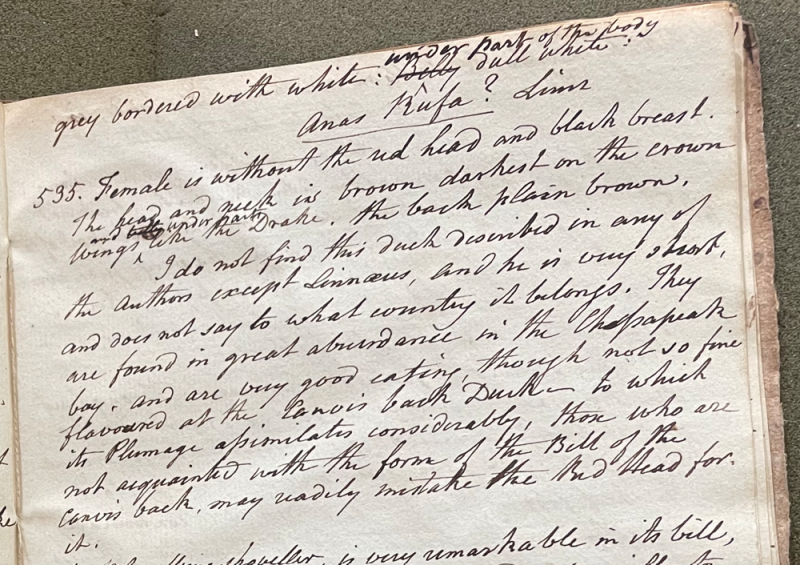 under part of the body
grey bordered with white: Belly dull white:
Anas Rufa? Linn
535. Female is without the red head and black breast.
The head and neck is brown darkest on the crown
and under part
wings ^ like the Drake. the back plain brown.
I do not find this duck described in any of
the authors except Linnæus, and he is very short,
and does not say to what country it belongs. They
are found in great abundance in the Chesapeak
bay. and are very good eating, though not so fine
flavoured at the Canvis back Duck – to which
its Plumage assimilates considerably, those who are
not acquainted with the form of the Bill of the
canvis back, may readily mistake the Red Head for
it.
shoveller, is very remarkable in its bill,